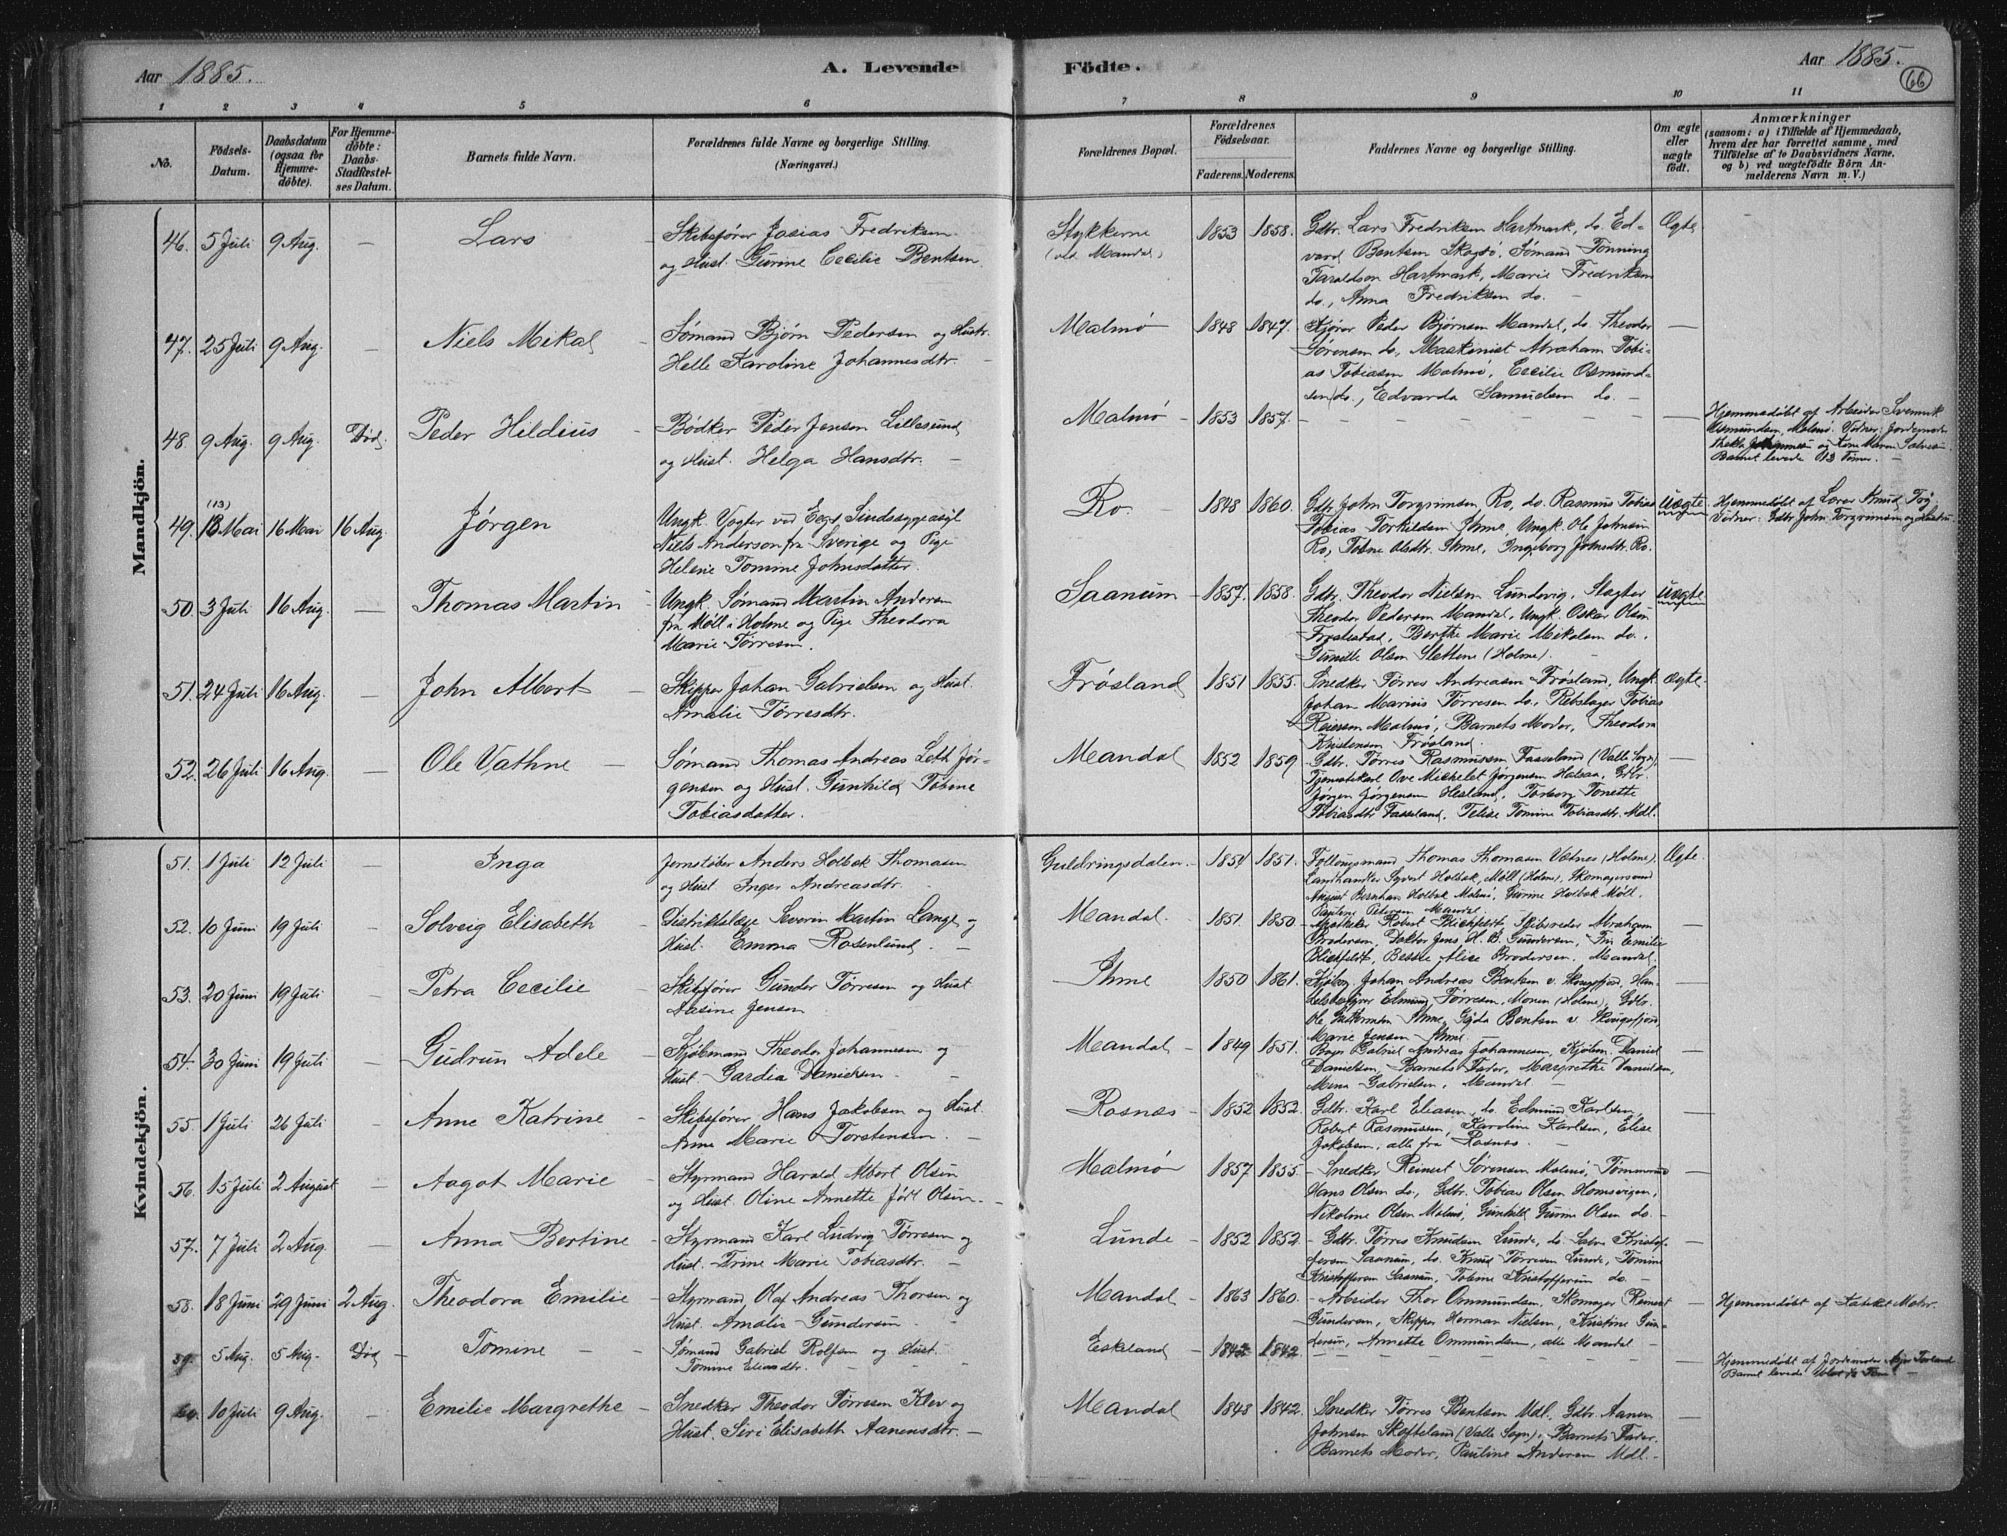 Aar 1885.
A. Levende Födte.
Aar 1885.
66
1 2 3 4 5 6 7 8 9 10 11
No.
Födsels-Datum.
Daabsdatum (ogsaa for Hjemme-döbte).
For Hjemme-döbte: Daabs-Stadfæstel-ses Datum.
Barnets fulde Navn.
Forældrenes fulde Navne og borgerlige Stilling. (Næringsvei.)
Forældrenes Bopæl.
Forældrenes Födselsaar.
Faderens. Moderens.
Faddernes Navne og borgerlige Stilling.
Om ægte eller uægte födt.
Anmærkninger
(saasom: a) i Tilfælde af Hjemmedaab, hvem der har forrettet samme, med Tilföielse af to Daabsvidners Navne, og b) ved uægtefödte Börn An-melderens Navn m. V.)
Mandkjön.
46. 5 Juli 9 Aug. — Lars — Skibsfører Josias Fredriksen Stykkerne 1853 1858. Gdbr. Lars Fredriksen Hartmark, do. Ed-
og Hust. Gurine Cecilie Bentsen. vard Bentsen Skogsø, Sømand Tønning
Taraldsen Hartmark, Marie Fredriksen
do., Anna Fredriksen do. — Ægte
47. 25 Juli 9 Aug. — Niels Mikal — Sømand Bjørn Pedersen og Hustr. Malmø 1848 1847. Peder Bjørnsen Mandal, do. Theodor —
Helle Karoline Johannesdtr. — Sørensen do., Maskinist Abraham Tobi-
as Tobiasen Malmø, Cecilie Osmund-
sen do., Edvarda Samuelsen do. —
48. 9 Aug. 9 Aug. Død. Peder Hildius — Bødker Peder Jensen Lillesund, Malmø — 1853 1857. — Hjemmedøbt af Arbeider
og Hust. Helga Hansdtr. — Osmundsen, Malmø. Vidner: Jordemoder
Barnet levede
49. (13) 18 Mai 16 Mai 16 Aug. Jørgen Ungk. Vogter ved Eegs Sindssygeasyl Ro. — 1848 1860. Gdbr. John Torgrimsen, Ro, do. Rasmus Tobias Uægte Hjemmedøbt af Lærer
Niels Anderson fra Sverige og Pige Tobias Torkildsen Ihme, Ungk. Ole Johnsen Vidner: Gdbr. John Torgrimsen og Hustru
Helene Tomine Johnsdatter. Ro, Tobine Olsdtr. Ihme, Ingeborg Johnsdtr. Ro.
50. 3 Juli 16 Aug. — Thomas Martin — Ungk. Sømand Martin Andersen Saanum — 1857. 1858. Gdbr. Theodor Nielsen Lundevig, Slagter Uægte
fra Møll i Holme og Pige Theodora Theodor Pedersen Mandal, Ungk. Oskar Olsen
Marie Tørresen. Berthe Marie Mikalsen do.
Olsen Slettene (Holme).
51. 24 Juli 16 Aug. — John Albert — Skipper Johan Gabrielsen og Hust. Frøsland 1851 1855. Snedker Tørres Andreasen Frøsland, Ungk. Ægte
Amalie Tørresdtr. Johan Marius Tørresen do., Rebslager Tobias
Reiersen Malmø, Barnets Moder, Theodora
Kristensen Frøsland.
52. 26 Juli 16 Aug. — Ole Vathne — Sømand Thomas Andreas Leth Jør- Mandal 1852 1859 Gdbr. Tørres Rasmussen Fasseland (Valle Sogn),
gensen og Hust. Gunhild Tobine Tjenestekarl Ove Michelet Jørgensen Halsaa, Gdbr.
Tobiasdatter. Jørgen Jørgensen Hesland, Torborg Tonette
Tobiasdtr Fasseland, Telise Tomine Tobiasdtr. Mdl.
Kvindekjön.
51. 1 Juli 12 Juli — Inga Jernstøber Anders Holbæk Thomasen Guldringsdalen. 1854 1851. Thomas Thomasen Vatnes (Holme), Ægte.
og Hust. Inger Andreasdtr. Landhandler Syvert Holbæk, Møll (Holme), Skomagersvend
August Holbæk Malmø, Gurine Holbæk Møll,
Pauline Petersen Mandal
52. 10 Juni 19 Juli — Solveig Elisabeth — Distriktslæge Severin Martin Lange og Mandal. 1851. 1850. Apotheker Robert Blichfeldt, Skibsreder Abraham —
Hust. Emma Rosenlund. — Brodersen, Doktor Jens H. B. Gundersen, Fru Emilie
Blichfeldt, Besse Alise Brodersen. Mandal.
53. 20 Juni 19 Juli — Petra Cecilie — Skibsfører Gunder Tørresen og Hust Ihme 1850 1861. Johan Andreas Bentsen v. Skogsfjord, Han- —
Jensen delsbestyrer Edmund Tørresen, Monen (Holme), Gdbr.
Ole Guttormsen Ihme, Gyda Bentsen v. Skogsfjord,
Marie Jensen Ihme
54. 30 Juni 19 Juli — Gudrun Adele Kjøbmand Theodor Johannesen og Mandal — 1849 1851. Gabriel Andreas Johannesen, Kjøbm. Daniel —
Hust. Gardia Danielsen. — Danielsen, Barnets Fader, Margrethe Danielsen,
Mina Gabrielsen, Mandal —
55. 1 Juli 26 Juli — Anne Katrine — Skibsfører Hans Jakobsen og Hust. Rosnæs — 1852 1852. Gdbr. Karl Eliasen, do. Edmund Karlsen, —
Anne Marie Torstensen. — Robert Rasmussen, Karoline Karlsen, Elise
Jakobsen, alle fra Rosnæs. —
56. 15 Juli 2 August — Aagot Marie — Styrmand Harald Albert Olsen Malmø 1857 1855. — Snedker Reinert Sørensen Malmø, Tømmermd —
og Hust. Oline Annette født Olsen. — Hans Olsen do., Gdbr. Tobias Olsen Homsvigen,
Nikoline Olsen Malmø, Gunhild Gurine Olsen do. —
57. 7 Juli 2 Aug. — Anna Bertine — Styrmand Karl Ludvig Tørresen og Lunde — 1852 1852. Gdbr. Tørres Knudsen Lunde, do. Salve Kristof- —
Hust. Trine Marie Tobiasdtr. — fersen Saanum, do. Knud Tørresen Lunde, Tomine
Kristoffersen Saanum, Tobine Kristoffersen do. —
58. 18 Juni 29 Juni 2 Aug. Theodora Emilie — Styrmand Olaf Andreas Thorsen og Mandal 1863 1860. — Arbeider Thor Ommundsen, Skomager Reinert — Hjemmedøbt af
Hust. Amalie Gundersen. — Gundersen, Skipper Herman Nielsen, Kristine Gun-
dersen, Annette Ommundsen, alle Mandal —
59. 5 Aug. 5 Aug. Død — Tomine — Sømand Gabriel Rolfsen og Hust. Eskeland — 1842 1842. — Hjemmedøbt af Jordemoder
Tomine Eliasdtr. — Barnet levede
60. 10 Juli 9 Aug. — Emilie Margrethe — Snedker Theodor Tørresen Klev og Mandal 1848 1842. Snedker Tørres Bentsen Mdl., Gdbr. Aanen —
Hust. Siri Elisabeth Aanensdtr. — Johnsen Skofteland (Valle Sogn), Barnets Fader,
Barnets Moder, Pauline Andersen Mdl. —